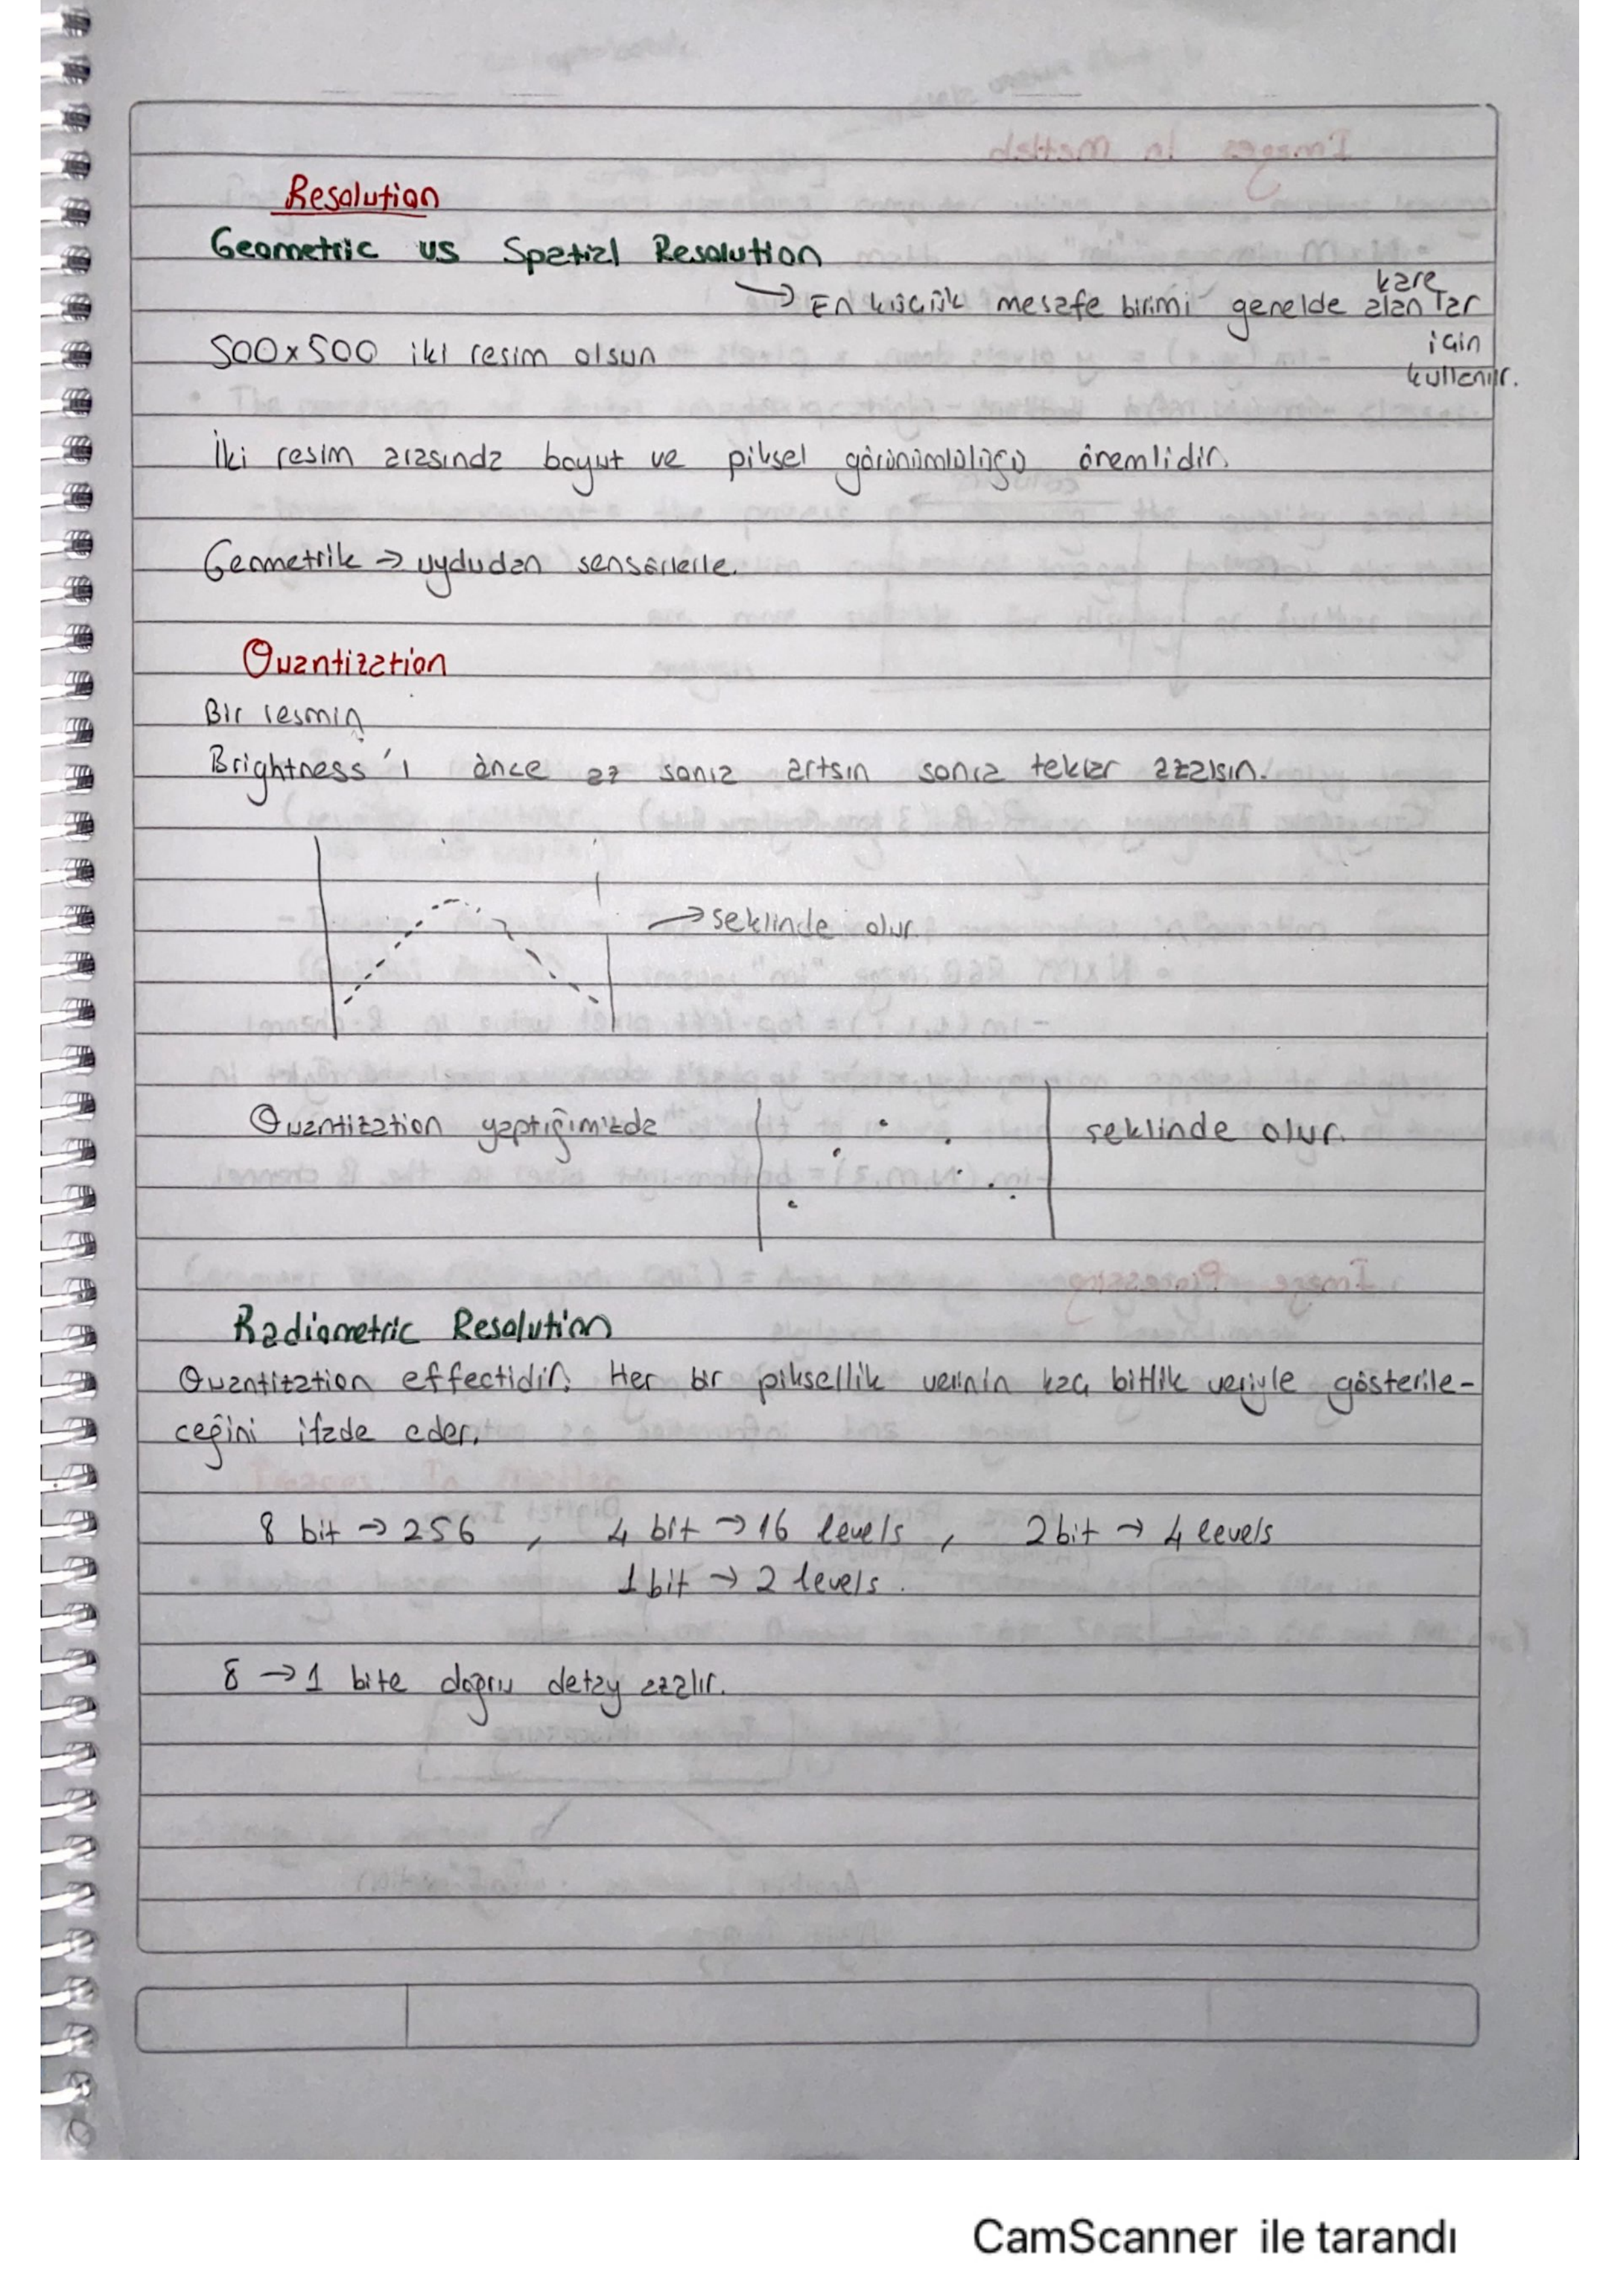 Resolution
Geometric vs Spatial Resolution
→ En küçük mesafe birimi genelde kare alanlar
için
kullanılır.
500x500 iki resim olsun
İki resim arasında boyut ve piksel görünümlülüğü önemlidir.
Geometrik → uydudan sensörlerle.
Quantization
Bir resmin
Brightness'ı önce az sonra artsın sonra tekrar azalsın.
→ seklinde olur.
Quantization yaptığımızda seklinde olur.
Radiometric Resolution
Quantization effectidir. Her bir piksellik verinin kaç bitlik veriyle gösterile-
ceğini ifade eder.
8 bit → 256 , 4 bit → 16 levels , 2 bit → 4 levels
1 bit → 2 levels.
8 → 1 bite doğru detay azalır.
CamScanner ile tarandı